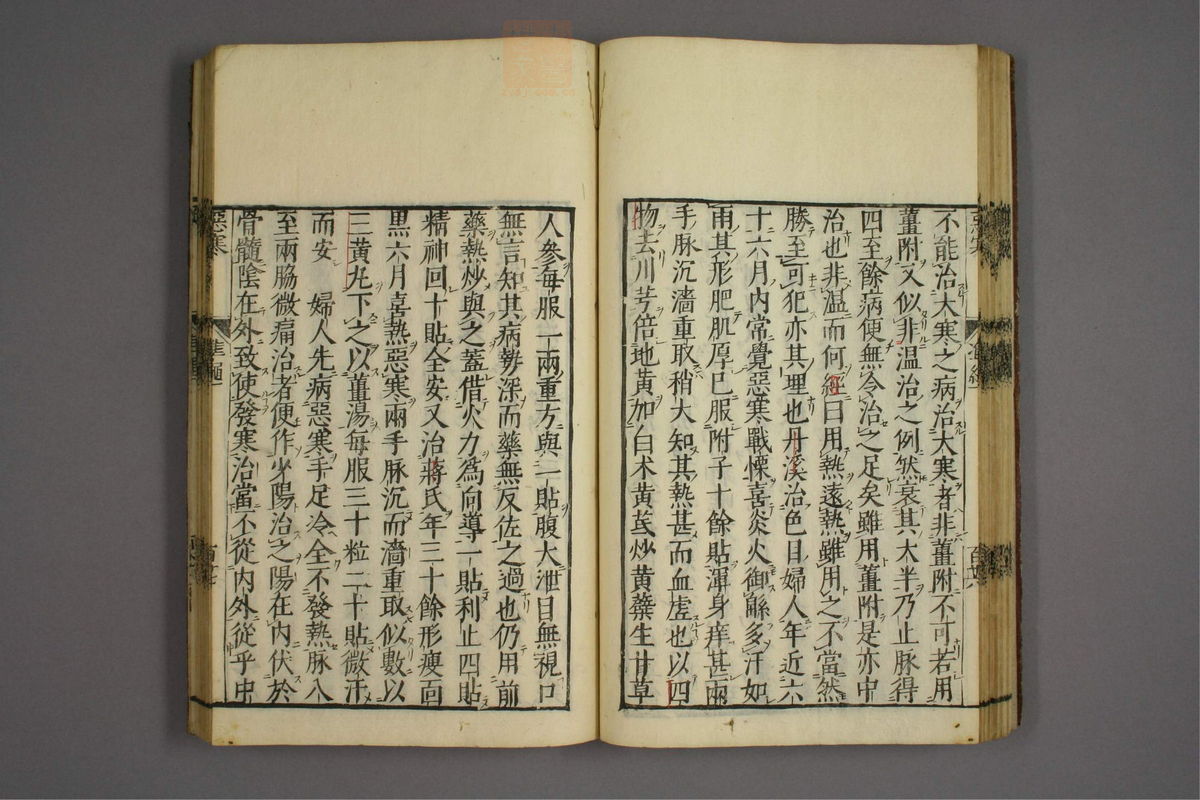 不能治大寒之病治大寒者非薑附不可若用
薑附又似非温治之例然衰其太半乃止脉得
四至餘病便無令治之足矣雖用薑附是亦中
治也非温而何經曰用熱遠熱雖用之不當然
勝至可犯亦其理也丹溪治色目婦人年近六
十六月內常覺惡寒戰慄喜炎火御綿多汗如
雨其形肥肌厚已服附子十餘貼渾身痒甚兩
手脉沉濇重取稍大知其熱甚而血虛也以四
物去川芎倍地黄加白术黄芪炒黄蘗生甘草
人參每服一兩重方與一貼腹大泄目無視口
無言知其病勢深而藥無反佐之過也仍用前
藥熱炒與之蓋借火力爲向導一貼利止四貼
精神回十貼全安又治蔣氏年三十餘形瘦面
黒六月喜熱惡寒兩手脉沉而濇重取似數以
三黄丸下之以薑湯每服三十粒二十貼微汗
而安 婦人先病惡寒手足冷全不發熱脉八
至兩脇微痛治者便作少陽治之陽在內伏於
骨髓陰在外致使發寒治當不從內外從乎中
惡寒